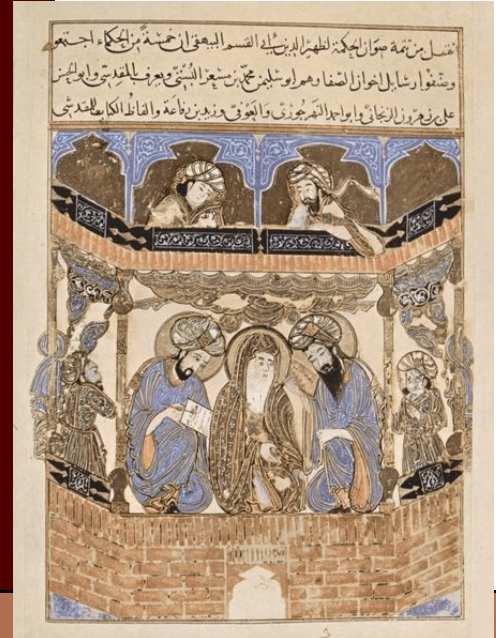 نقل من تتمة صوان الحكمة لظهير الدين بن ابي القسم البيهقي ان خمسة من الحكماء اجتمعوا
وصنفوا رسايل اخوان الصفا وهم ابو سليمن محمد بن مسعر البستي ويعرف بالمقدسي وابو الحسن
علي بن زهرون الزنجاني وابو احمد النهرجوري والعوفي وزيد بن رفاعة والفاظ الكتاب للمقدسي